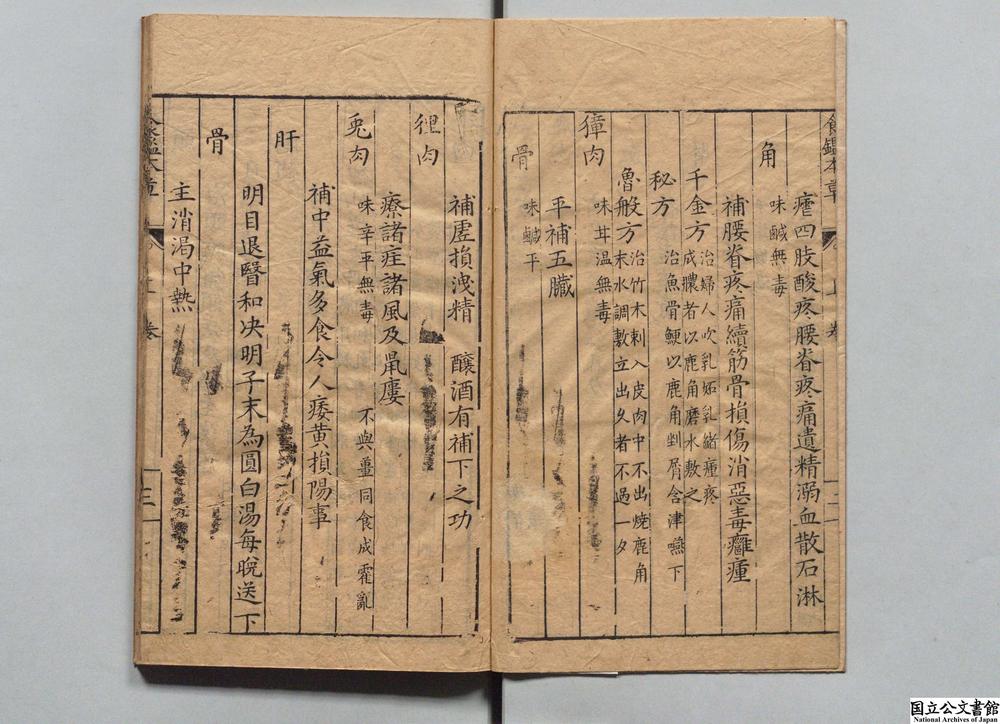 食鑑本草
瘧四肢酸疼腰脊疼痛遺精溺血散石淋
角
味鹹無毒
補腰脊疼痛續筋骨損傷消惡毒癰瘇
千金方
治婦人吹乳妬乳緒瘇疼
成膿者以鹿角磨水敷之
秘方
治魚骨鯁以鹿角剉屑含津嚥下
魯般方
治竹木刺入皮肉中不出燒鹿角
末水調敷立出久者不過一夕
獐肉
味甘温無毒
平補五臟
骨
味鹹平
補虛損洩精 釀酒有補下之功
狸肉
療諸症諸風及鼠瘻
兎肉
味辛平無毒 不與薑同食成霍亂
補中益氣多食令人痿黄損陽事
肝
明目退瞖和决明子末為圓白湯每晚送下
骨
主消渴中熱
食鑑本草
卷
三